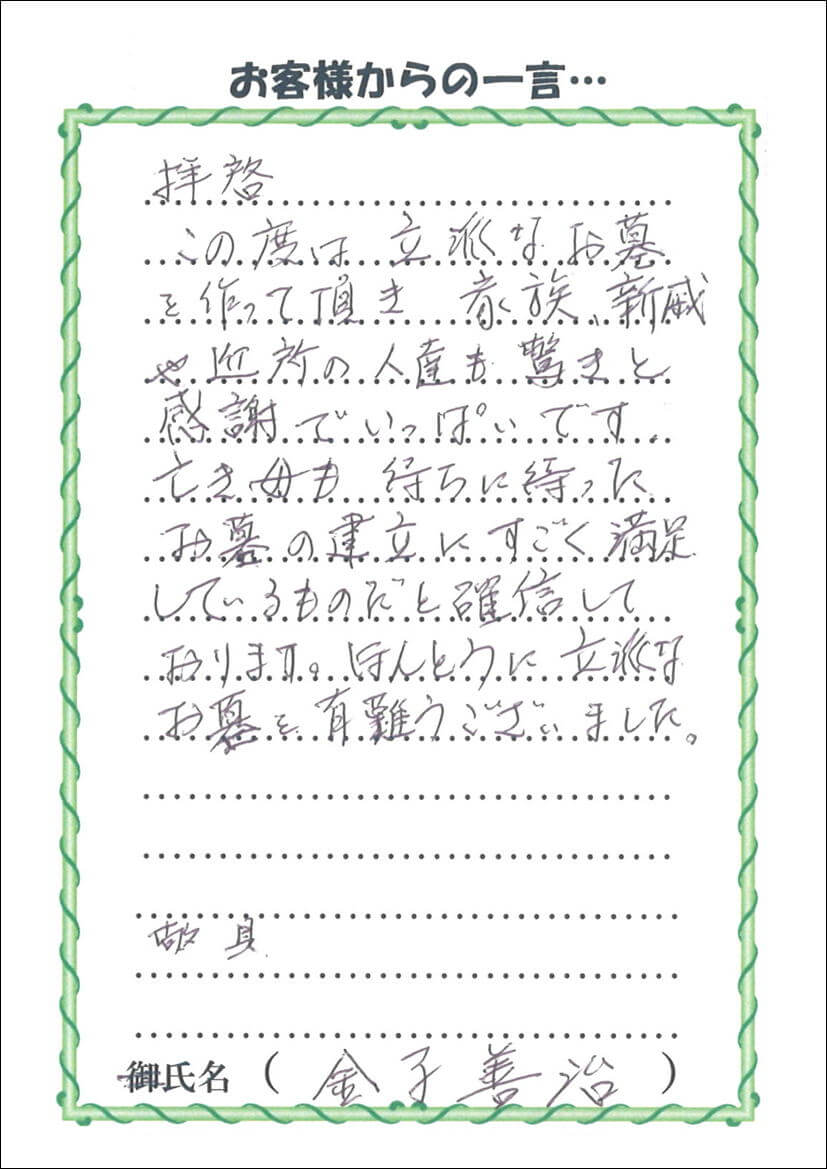 お客様からの一言…
拝啓
この度は立派なお墓
を作って頂き 家族、新戚
や近所の人達も驚きと
感謝でいっぱいです。
亡き母も待ちに待った
お墓の建立にすごく満足
しているものだと確信して
おります。ほんとうに立派な
お墓を有難うございました。
敬具
御氏名 （金子善治）